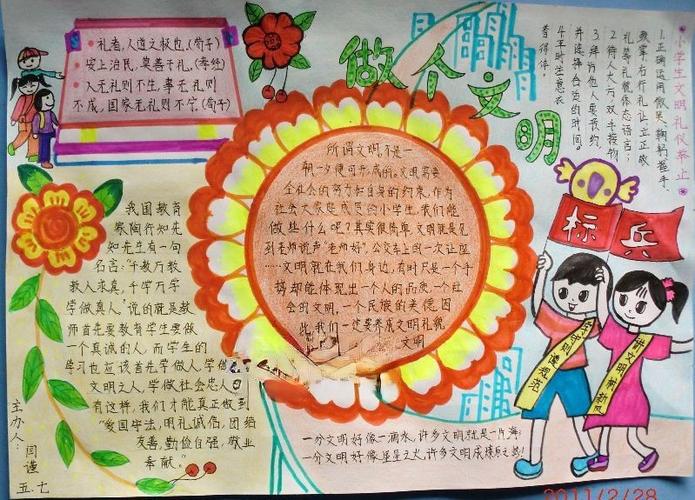 做个文明
标兵
礼者,人道之极也,(荀子)
安上治民,莫善于礼。(孝经)
人无礼则不生,事无礼则
不成,国家无礼则不宁。(荀子)
所谓文明不是一
朝一夕便可形成的,文明需要
全社会的努力和自身的约束。作为
社会大家庭成员的小学生,我们能
做些什么呢?其实很简单,文明就是见
到老师说声"老师好",公交车上的一次让座
……文明就在我们身边,有时只是一个手
势却能体现出一个人的品质一个社
会的文明,一个民族的美德因
此,我们一定要养成文明礼貌
文明
小学生文明礼仪举止
1.正确运用微笑、鞠躬、握手、
礼等礼貌体态语言;
2.待人大方,双手接物
3.拜访他人要预约
并选择合适的时间。
我国教育
家陶行知先
知先生有一句
名言:"千教万教
教人求真,千学万学
学做真人"说的就是教
师首先要教育学生要做
一个真诚的人,而学生的
学习也应该首先学做人,学做
文明之人,学做社会忠人
有这样,我们才能真正做到
"爱国守法,明礼诚信,团结
友善,勤俭自强,敬业
奉献。"
主办人:闫谨
五.七
学守则遵规范
讲文明树新风
一分文明好像一滴水,许多文明就是一片海;
一分文明好像星星之火,许多文明成燎原之势!
2011/2/28